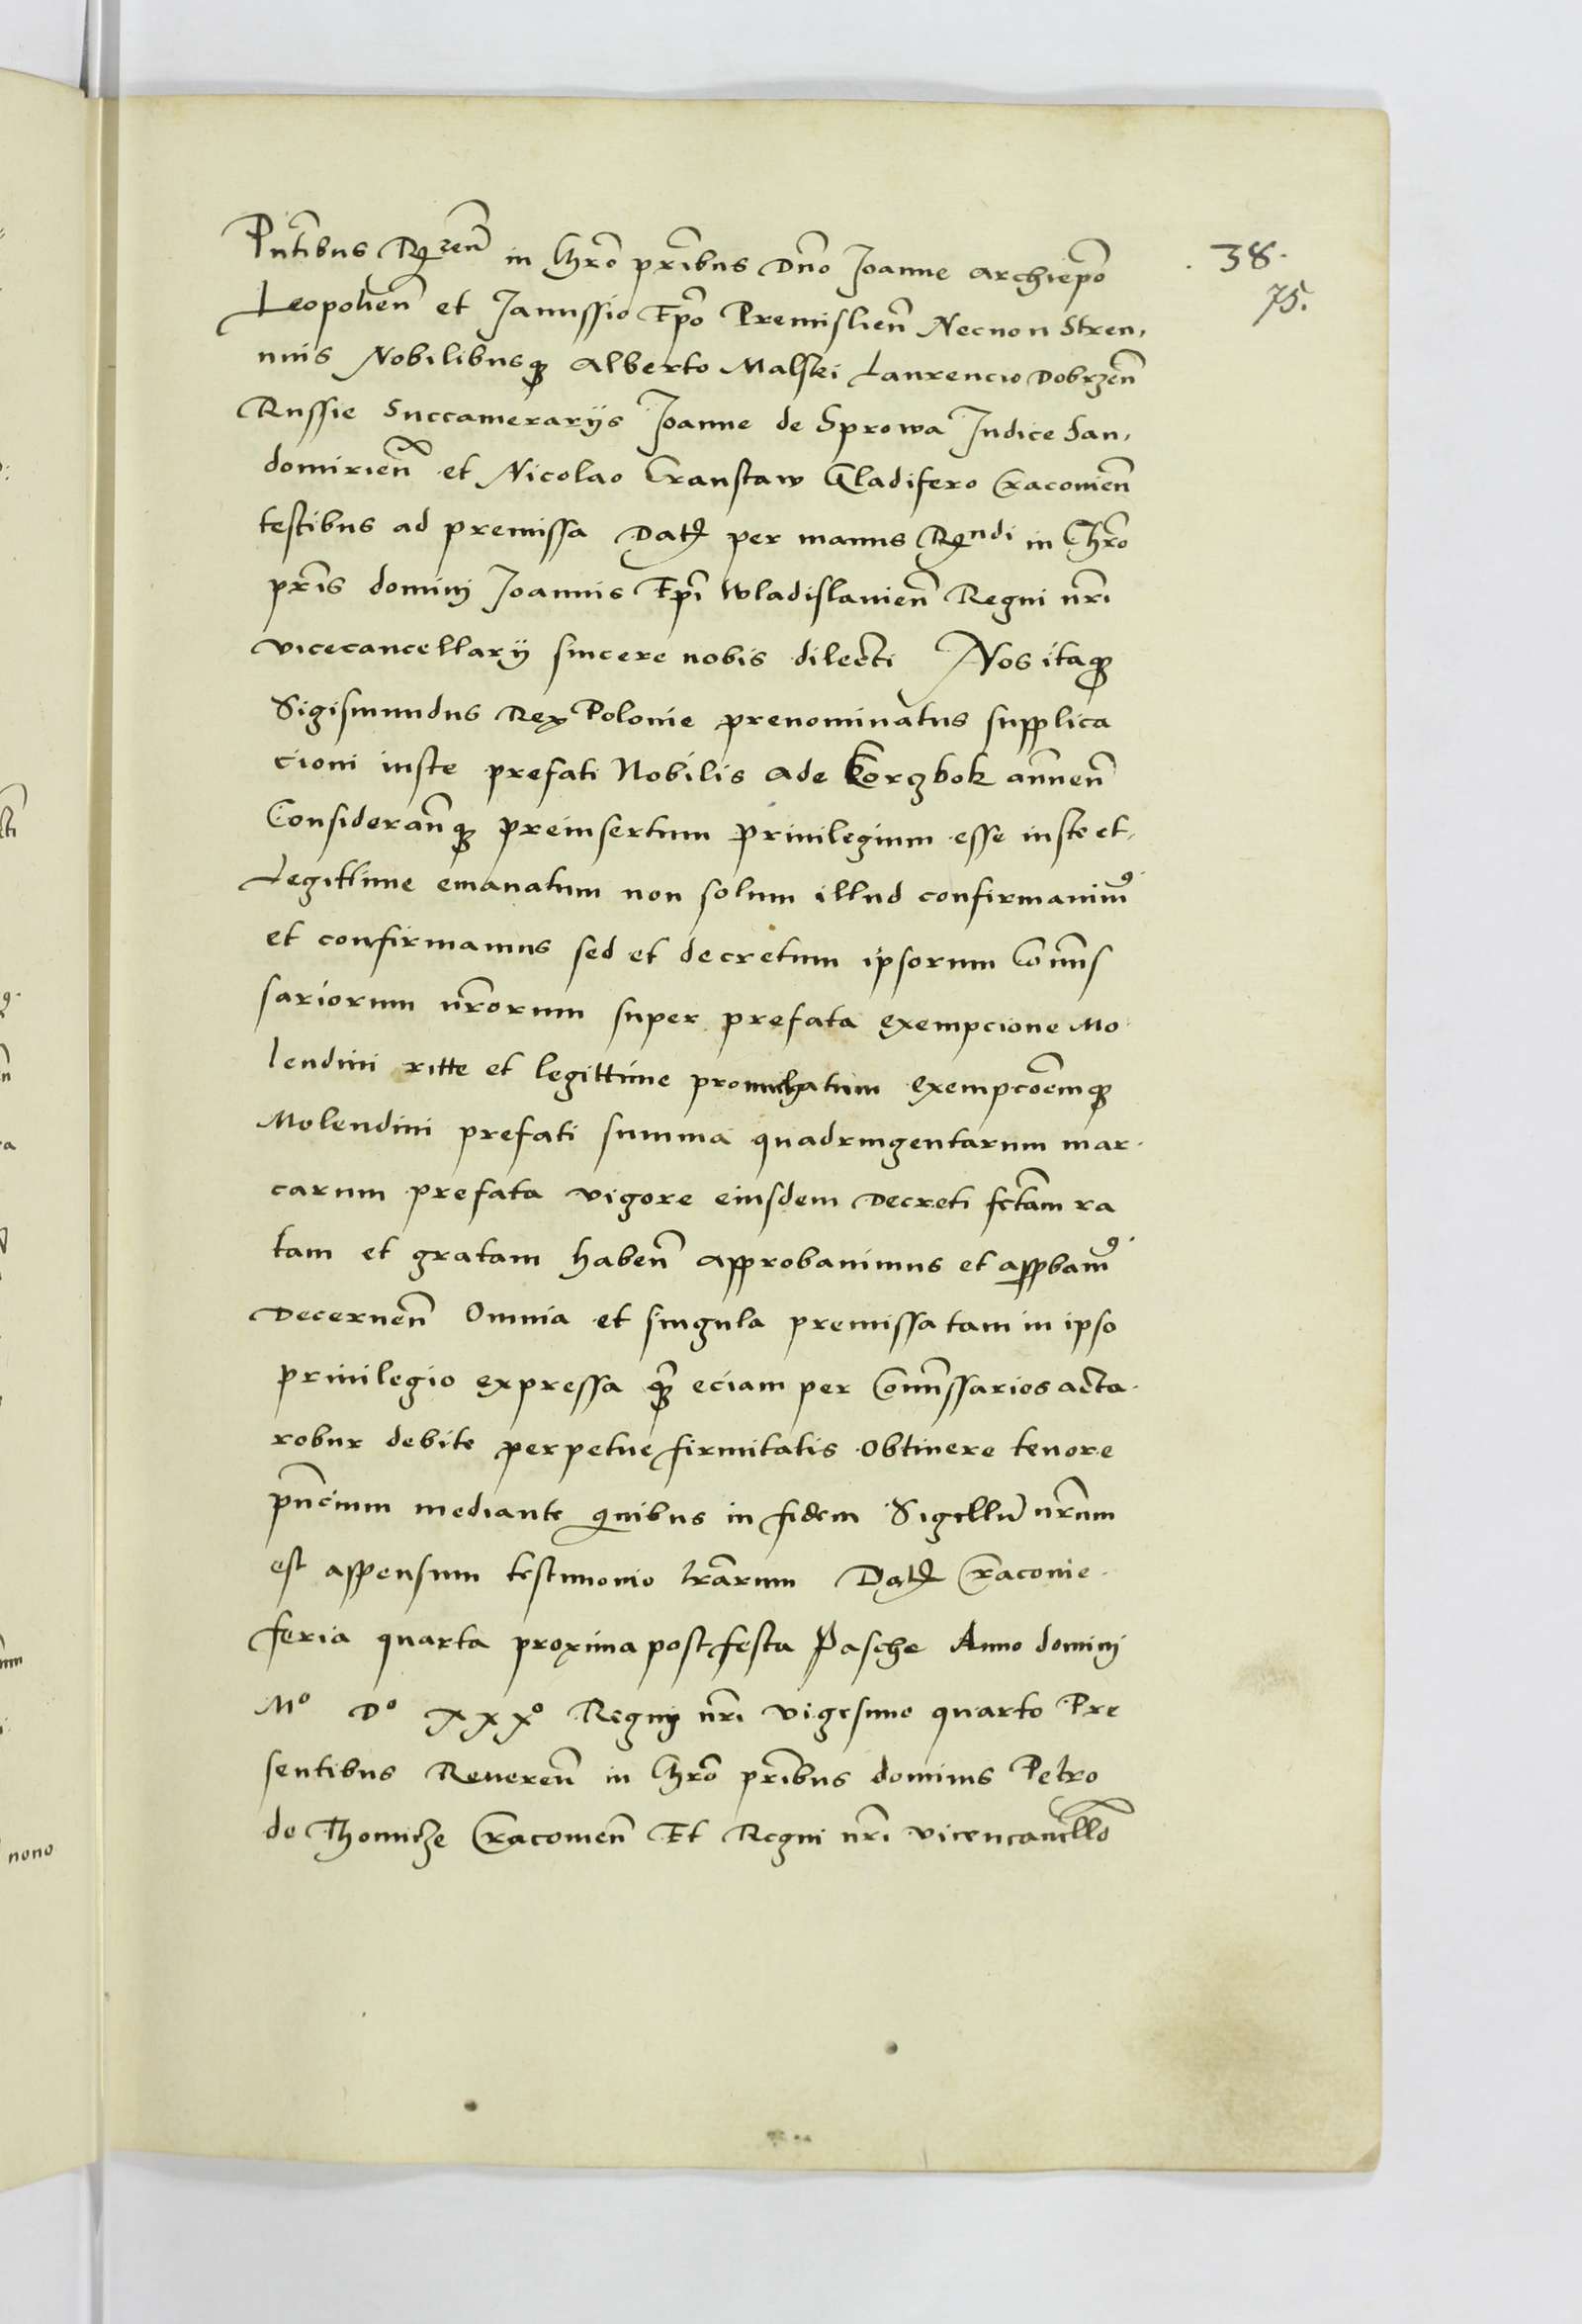 Pntibus Rzen in Chro pribus Dno Joanne archiepo
38.
75.
Leopolien et Janussio Epo Premislien Necnon Stren,
nuis Nobilibusq Alberto Malski Laurencio Dobrzen
Russie Succamerariis Joanne de Sprowa Judice San,
domirien et Nicolao Cranstaw Gladifero Cracovien
testibus ad premissa Dat per manus Rndi in Chro
pris dominj Joannis Epi Wladislavien Regni nri
vicecancellarij sincere nobis dilecti Nos itaq
Sigismundus Rex Polonie prenominatus supplica
cioni iuste prefati Nobilis Ade Korzbok annuen
Consideranq preinsertum privilegium esse iuste et
Legittime emanatum non solum illud confirmavim9
et confirmamus sed et decretum ipsorum Comis
sariorum nrorum super prefata exempcione Mo
lendini ritte et legittime exempcoemq
Molendini prefati summa quadringentarum mar
carum prefata vigore eiusdem Decreti fctam ra
tam et gratam haben approbavimus et appbam9
Decernen Omnia et singula premissa tam in ipso
privilegio expressa q eciam per Comissarios acta
robur debite perpetue firmitatis obtinere tenore
pncium mediante quibus in fidem Sigillu nrum
est appensum testimonio lrarum Dat Cracovie
feria quarta proxima post festa Pasche Anno dominj
Mo Do xxxo Regnj nri vigesimo quarto Pre
sentibus Reveren in Chro pribus dominis Petro
de Thomicze Cracovien Et Regni nri vicencancello
nono